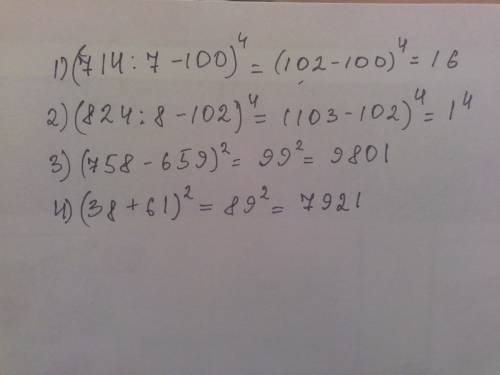 1) (714 : 7 - 100)⁴ = (102 - 100)⁴ = 16
2) (824 : 8 - 102)⁴ = (103 - 102)⁴ = 1⁴
3) (758 - 659)² = 99² = 9801
4) (38 + 61)² = 89² = 7921